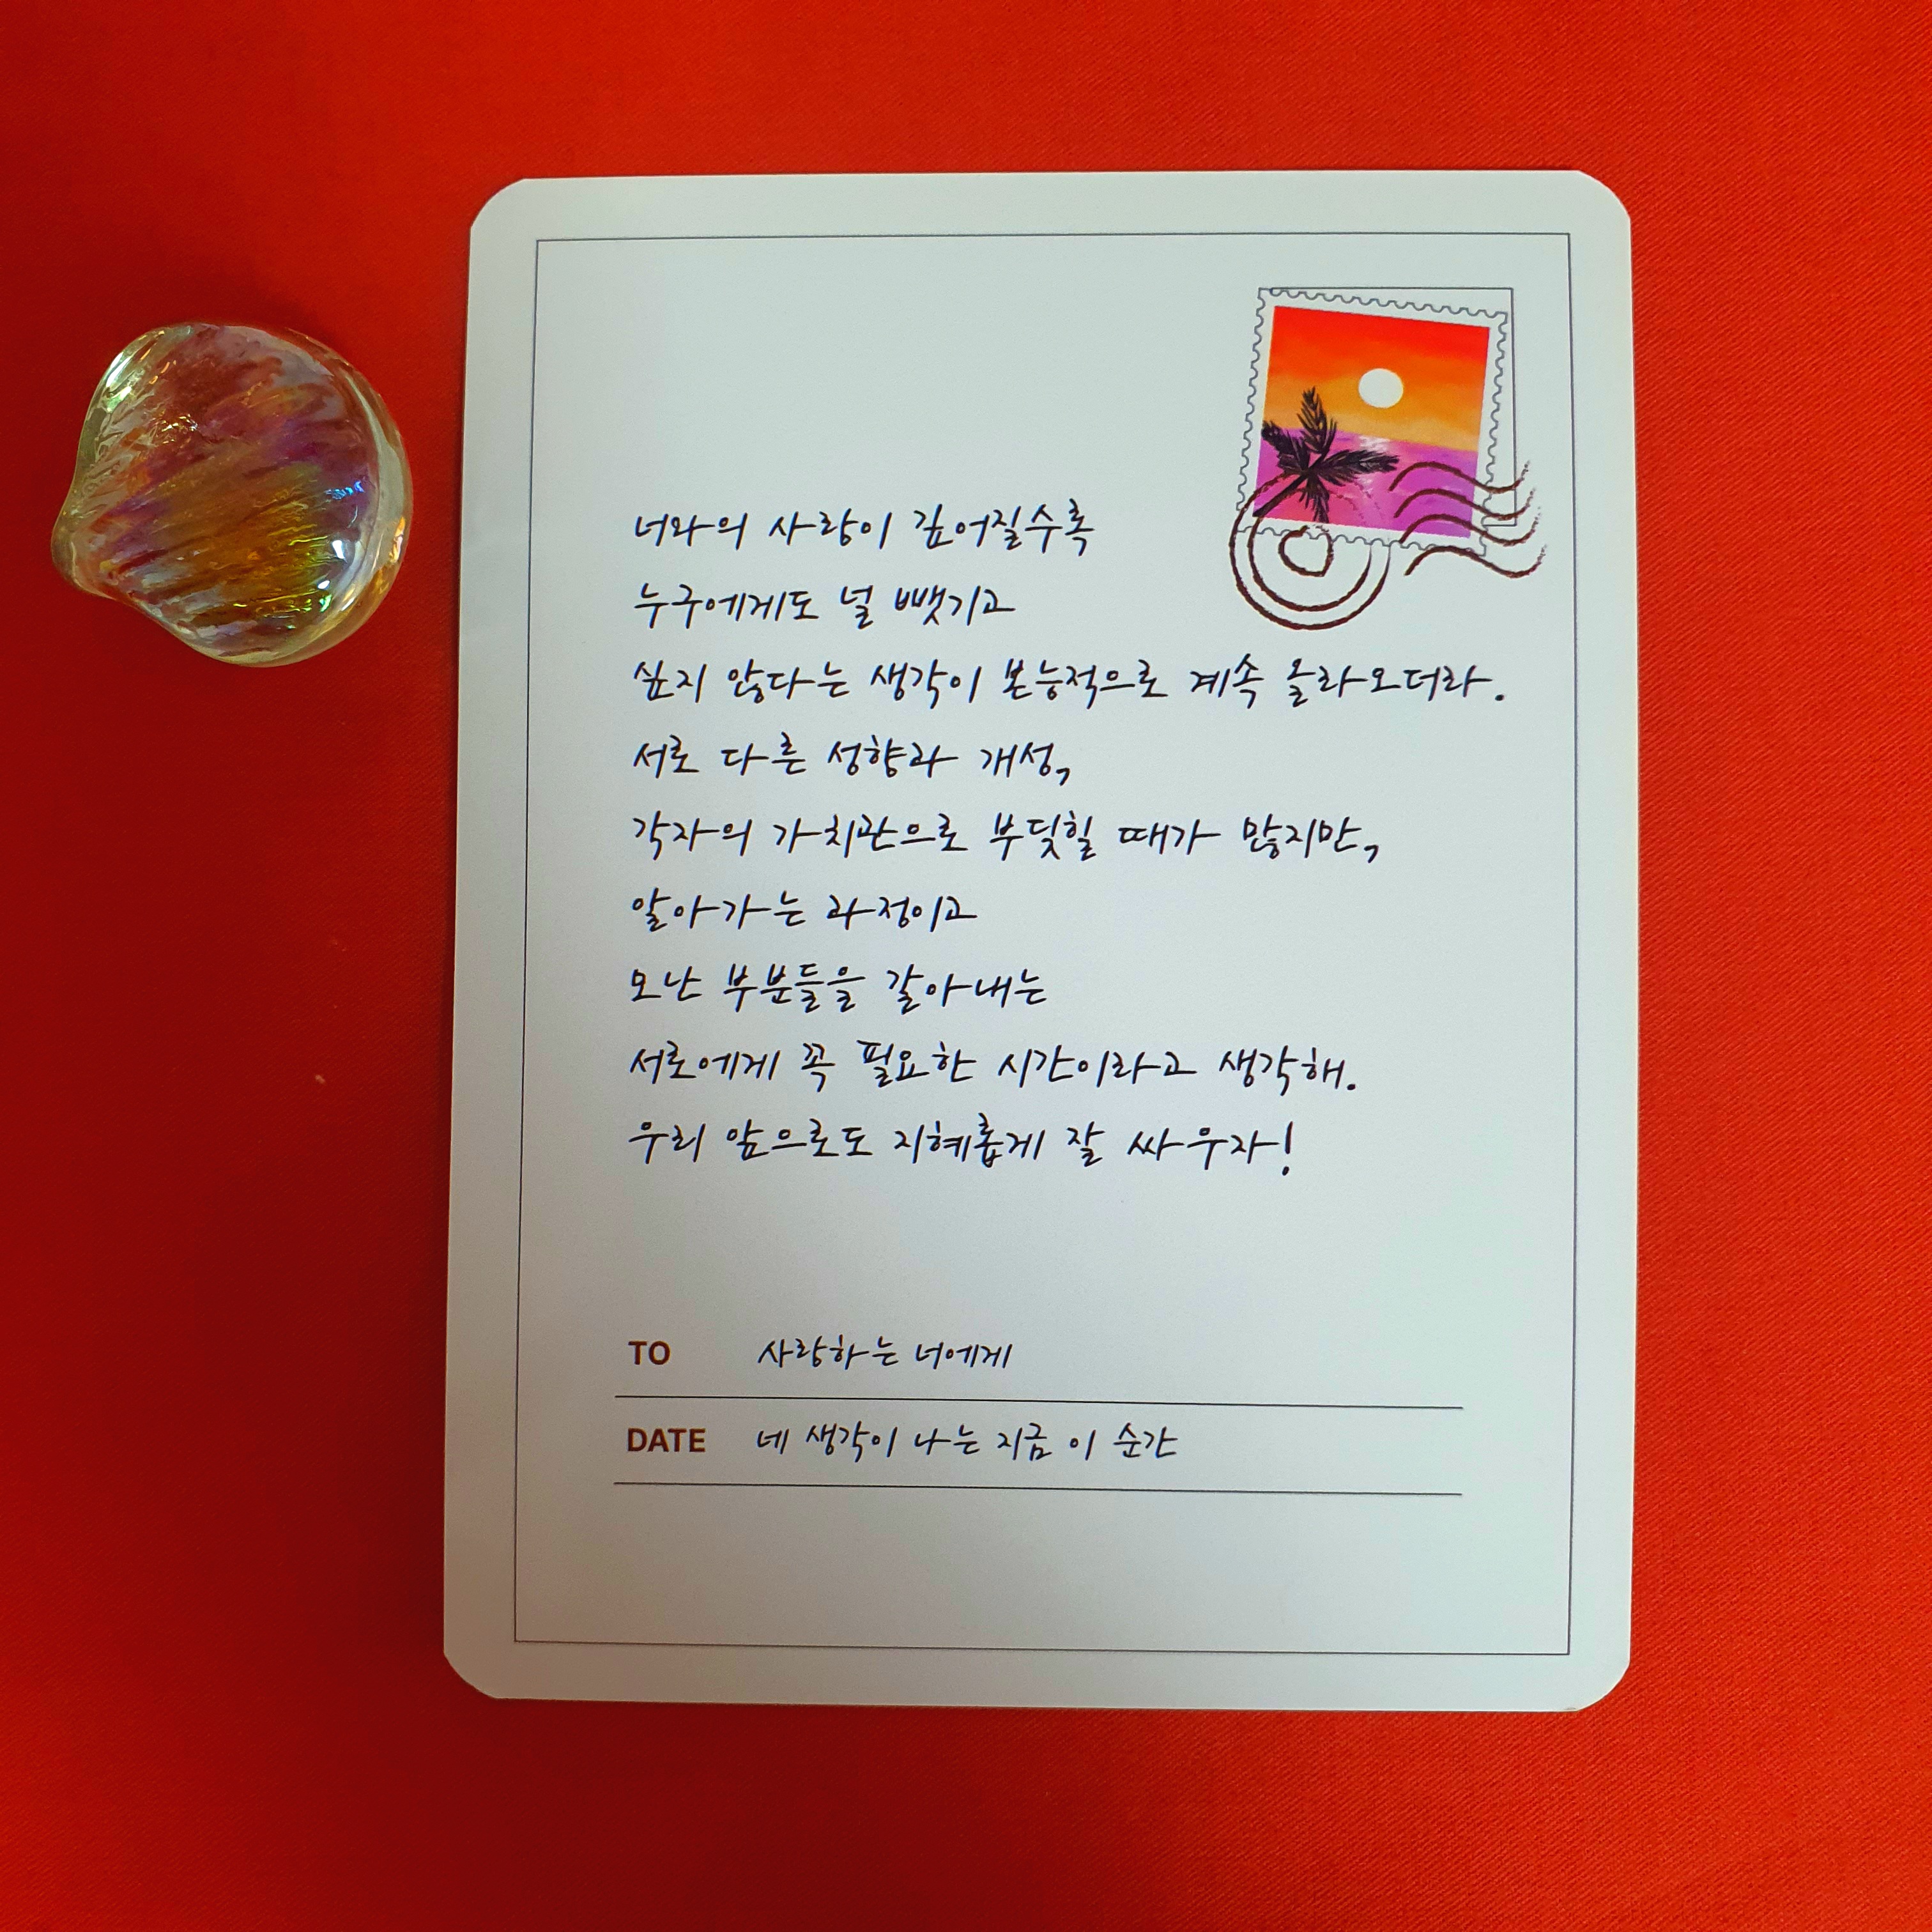 너와의 사랑이 깊어질수록
누구에게도 널 뺏기고
싶지 않다는 생각이 본능적으로 계속 올라오더라.
서로 다른 성향과 개성,
각자의 가치관으로 부딪힐 때가 많지만,
알아가는 과정이고
모난 부분들을 갈아내는
서로에게 꼭 필요한 시간이라고 생각해.
우리 앞으로도 지혜롭게 잘 싸우자!
TO 사랑하는 너에게
DATE 네 생각이 나는 지금 이 순간